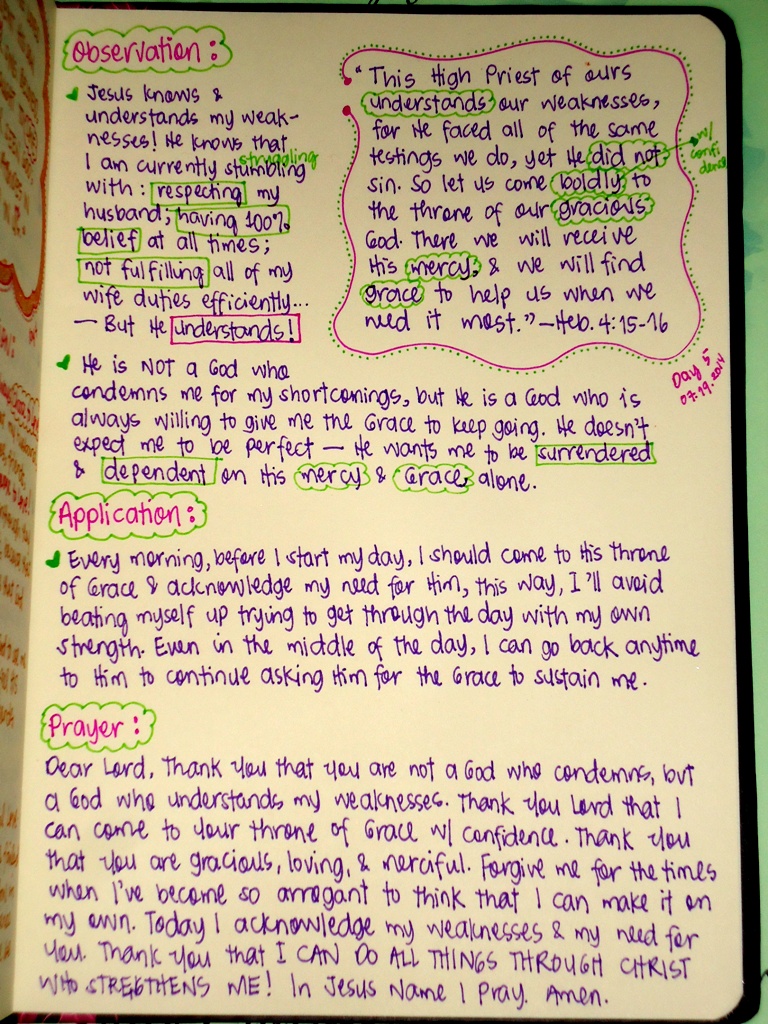 Observation:
Jesus knows &
understands my weak-
nesses! He knows that
struggling
I am currently stumbling
with: respecting my
husband; having 100%
belief at all times;
not fulfilling all of my
wife duties efficiently...
— But He understands!
"This High Priest of ours
understands our weaknesses,
for He faced all of the same
testings we do, yet He did not
sin. So let us come boldly to
the throne of our gracious
God. There we will receive
His mercy, & we will find
grace to help us when we
need it most." —Heb. 4:15-16
w/
confi
dence
Day 5
07.19.2014
He is NOT a God who
condemns me for my shortcomings, but He is a God who is
always willing to give me the Grace to keep going. He doesn't
expect me to be perfect — He wants me to be surrendered
& dependent on His mercy & Grace alone.
Application:
Every morning, before I start my day, I should come to His throne
of Grace & acknowledge my need for Him, this way, I'll avoid
beating myself up trying to get through the day with my own
strength. Even in the middle of the day, I can go back anytime
to Him to continue asking Him for the Grace to sustain me.
Prayer:
Dear Lord, Thank You that You are not a God who condemns, but
a God who understands my weaknesses. Thank You Lord that I
can come to Your throne of Grace w/ confidence. Thank You
that You are gracious, loving, & merciful. Forgive me for the times
when I've become so arrogant to think that I can make it on
my own. Today I acknowledge my weaknesses & my need for
You. Thank You that I CAN DO ALL THINGS THROUGH CHRIST
WHO STREGTHENS ME! In Jesus Name I Pray. Amen.